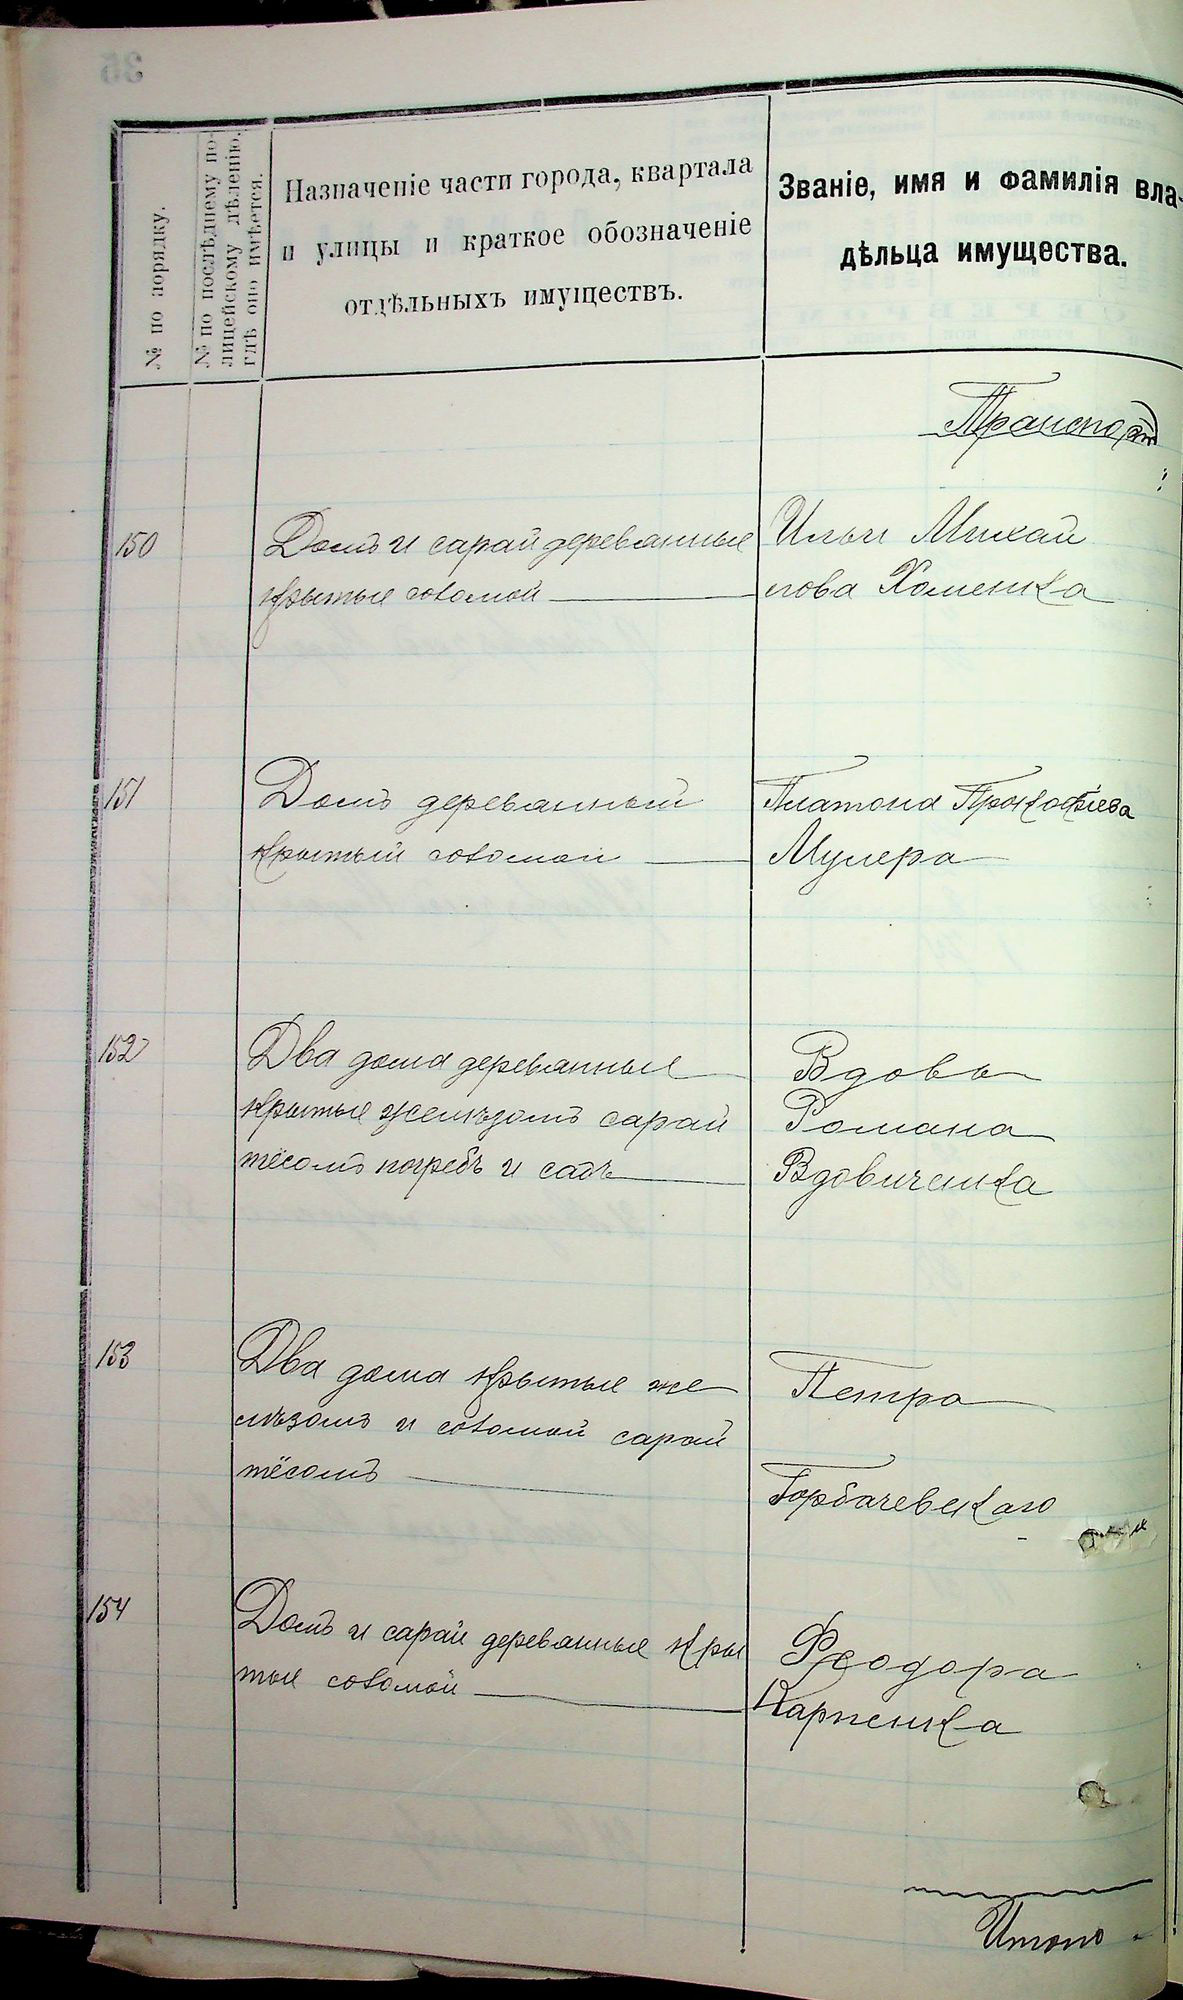 № по порядку.
№ по послѣднему по-
лицейскому дѣленію,
гдѣ оно имѣется.
Назначеніе части города, квартала
и улицы и краткое обозначеніе
отдѣльныхъ имуществъ.
Званіе, имя и фамилія вла-
дѣльца имущества.
Транспортъ
150
Домъ и сарай деревянные
крытые соломой
Ильи Михай
лова Хоменка
151
Домъ деревянный
крытый соломой
Платона Прокофіева
Мулера
152
Два дома деревянные
крытые желѣзомъ сарай
тёсомъ погребъ и садъ
Вдовы
Романа
Вдовиченка
153
Два дома крытые же
лѣзомъ и соломой сарай
тёсомъ
Петра
Горбачевскаго
154
Домъ и сарай деревянные кры
тые соломой
Феодора
Карпенка
Итого